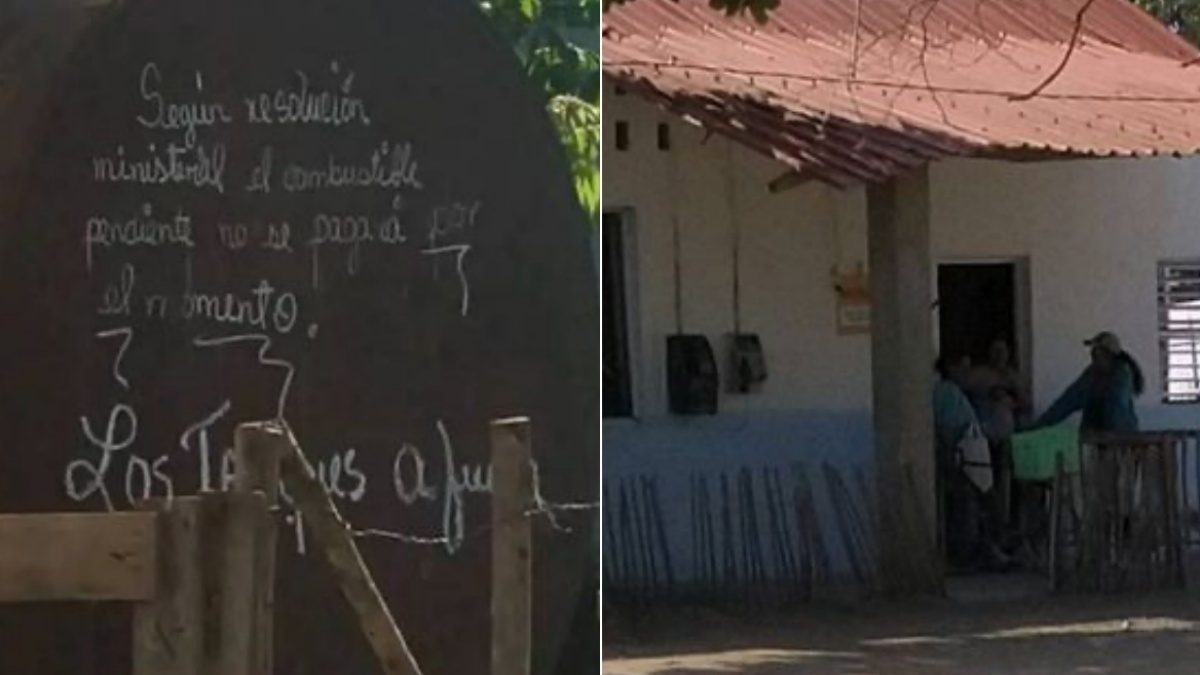 Según resolución
ministerial el combustible
pendiente no se pagará por
el momento.
Los Tanques afuera